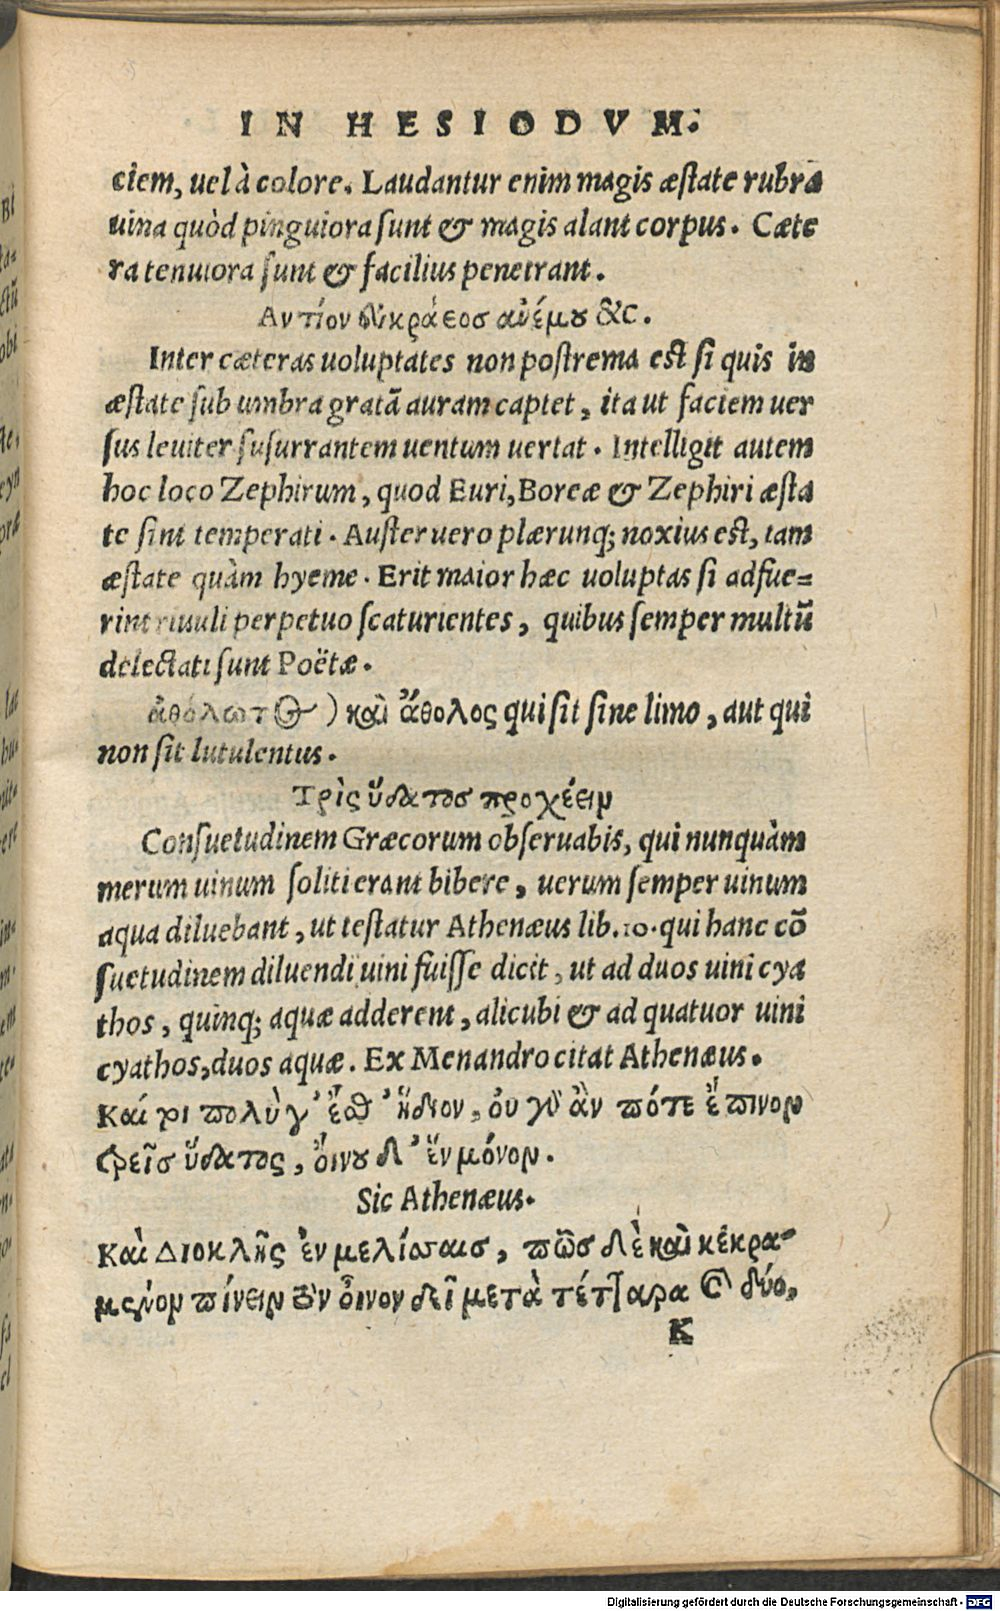 IN HESIODVM.
ciem, uel à colore. Laudantur enim magis æstate rubra
uina quòd pinguiora sunt & magis alant corpus. Cæte
ra tenuiora sunt & facilius penetrant.
Αντίον ἐυκράεος ἀνέμου &c.
Inter cæteras uoluptates non postrema est si quis in
æstate sub umbra gratã auram captet, ita ut faciem uer
sus leuiter susurrantem uentum uertat. Intelligit autem
hoc loco Zephirum, quod Euri, Boreæ & Zephiri æsta
te sint temperati. Auster uero plærunq; noxius est, tam
æstate quàm hyeme. Erit maior hæc uoluptas si adfue=
rint riuuli perpetuo scaturientes, quibus semper multũ
delectati sunt Poëtæ.
ἀθόλωτος) καὶ ἄθολος qui sit sine limo, aut qui
non sit lutulentus.
Τρὶς ὕδατος προχέειν
Consuetudinem Græcorum obseruabis, qui nunquàm
merum uinum soliti erant bibere, uerum semper uinum
aqua diluebant, ut testatur Athenæus lib. 10. qui hanc cõ
suetudinem diluendi uini fuisse dicit, ut ad duos uini cya
thos, quinq; aquæ adderent, alicubi & ad quatuor uini
cyathos, duos aquæ. Ex Menandro citat Athenæus.
Καί ρι πολὺ γ' ἔσθ' ἥδιον, ὀυ γὸ ἂν πότε ἔπινον
τρεῖς ὕδατος, ὄινου δ' ἕν μόνον.
Sic Athenæus.
Καὶ Διοκλῆς ἐν μελίσσαις, πῶς δὲ καὶ κέκρα-
μένον πίνειν τὸν οἶνον δεῖ μετὰ τέτταρα καὶ δύο,
K
Digitalisierung gefördert durch die Deutsche Forschungsgemeinschaft - DFG